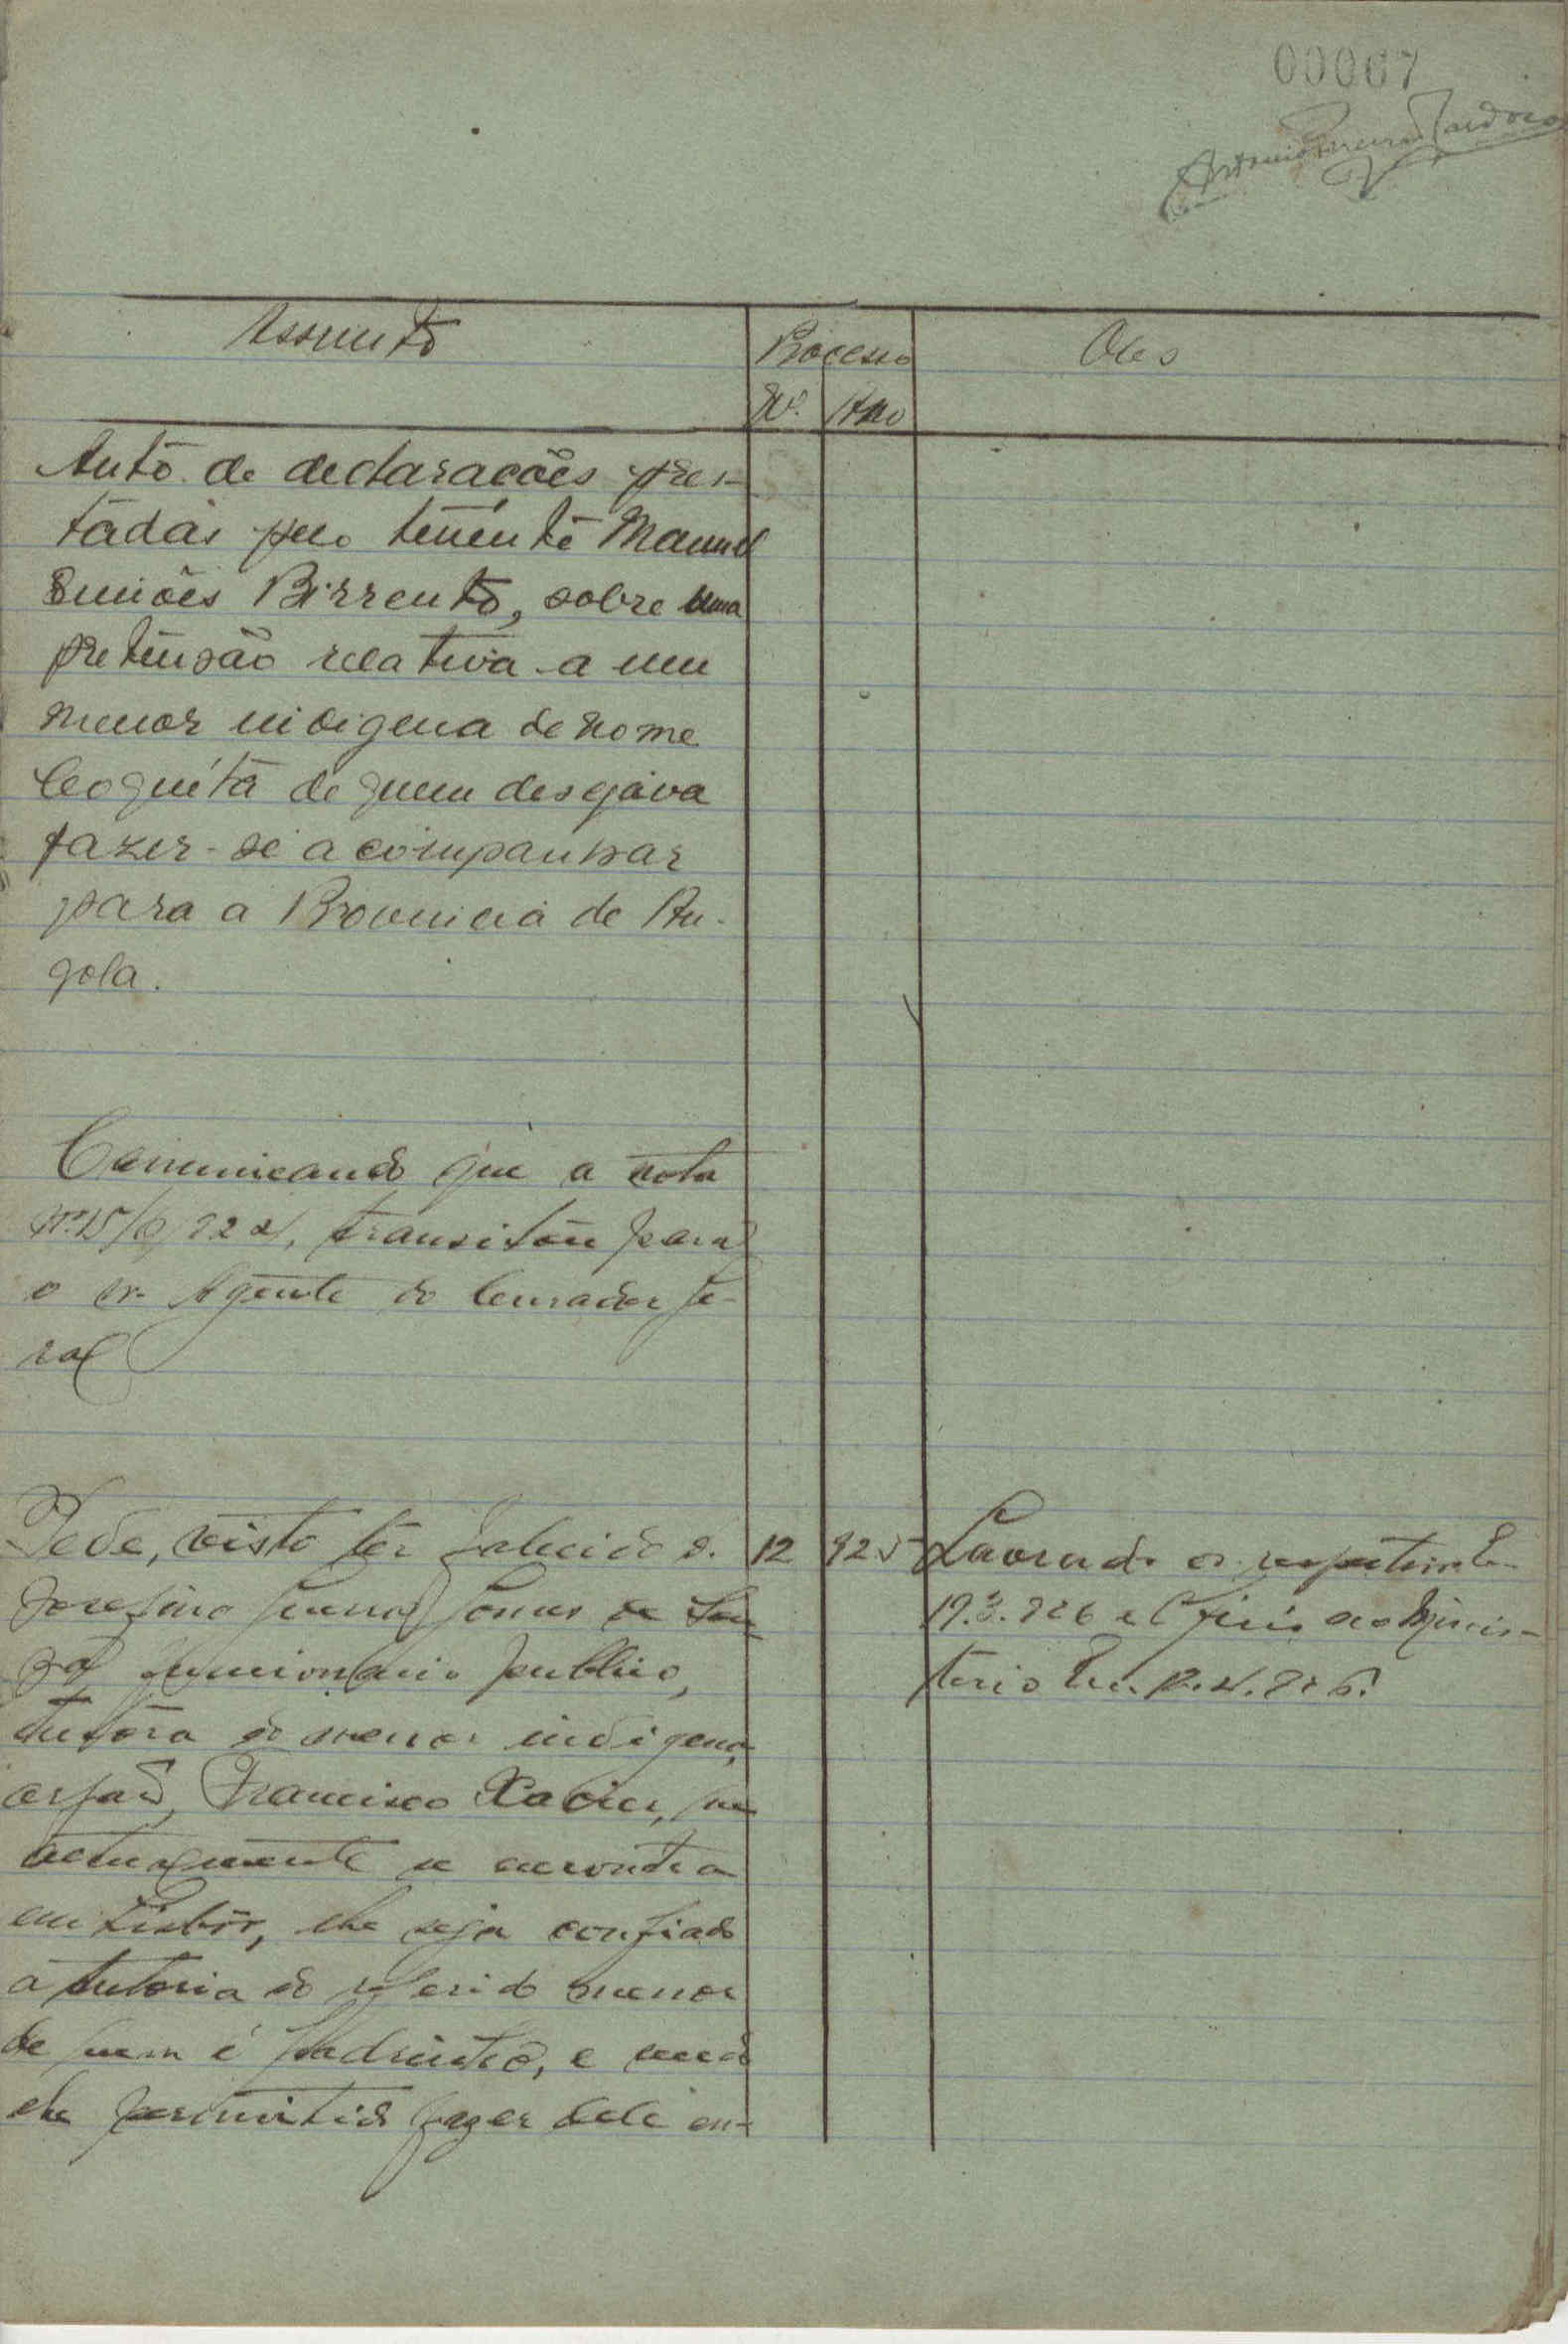 00067
Antonio Cardoso
Assunto
Processo
Obs
Nº. Ano
Auto de declarações pres-
tadas pelo tenente Manuel
Simões Birrento, sobre uma
pretensão relativa a um
menor indigena de nome
Coquita de quem desejava
fazer-se acompanhar
para a Provincia de An-
gola.
Comunicando que a nota
transitou para
o sr. Agente do Curador Ge-
ral
Pede, visto ter falecido D.
Josefina Gomes de Sou-
za funcionario publico,
tutora do menor indigena,
orfão, Francisco Xavier, que
actualmente se encontra
em Lisboa, lhe seja confiado
a tutoria do referido menor
de quem é padrinho, e
lhe permitido fazer dele en-
12 925
Lavrado o respectivo
19.3.926 e oficio ao Minis-
terio em 12.4.926.